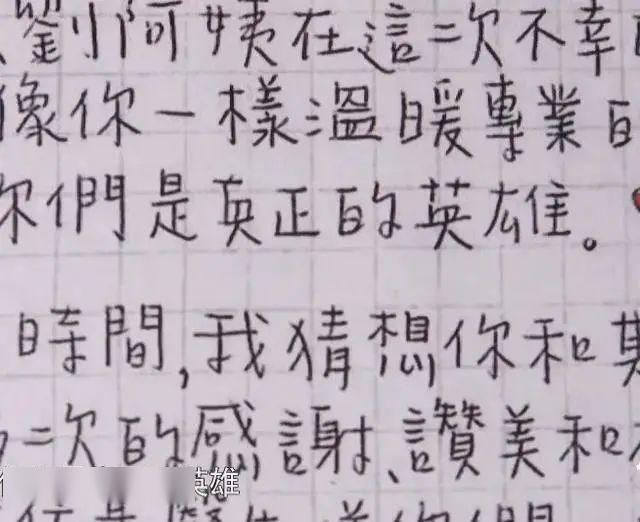 劉阿姨在這二次不幸
像你一樣溫暖專業的
你們是真正的英雄。
時間,我猜想你和其
二次的感謝、讚美和
英雄